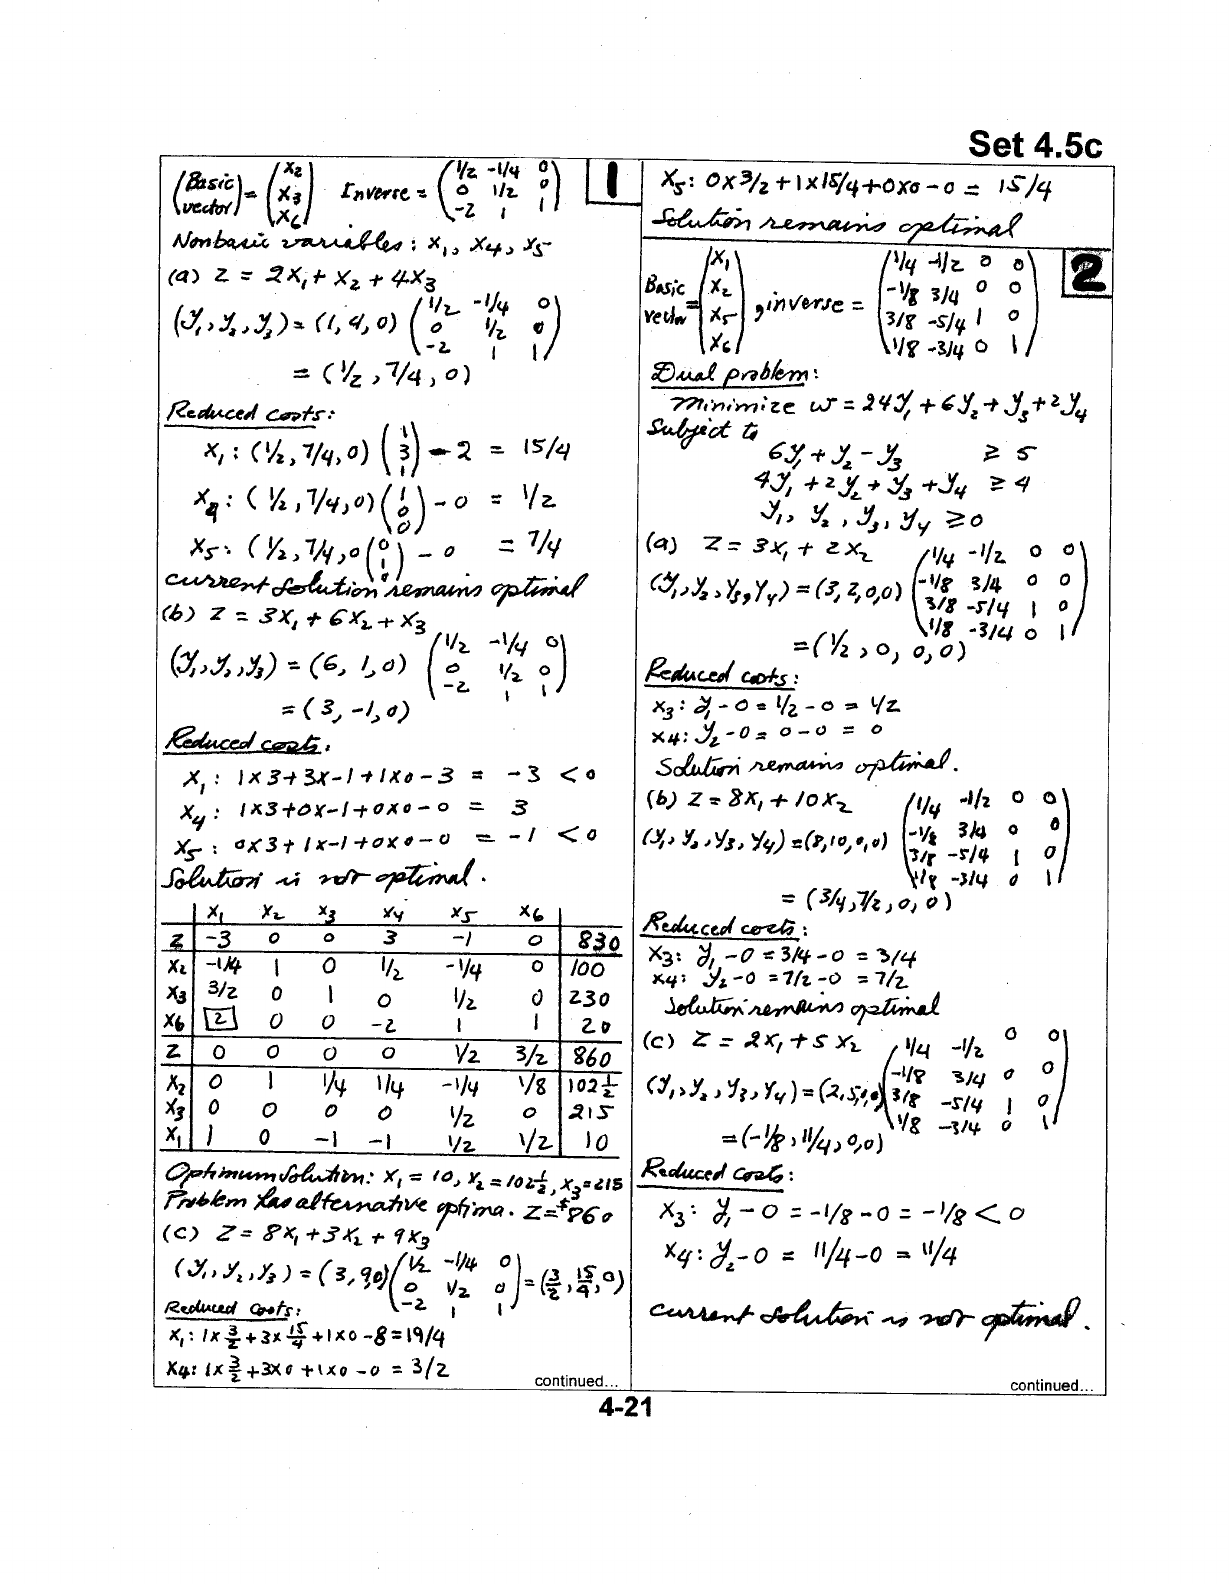 Set 4.5c
1
(Basic vector) = (X2 X3 X6) Inverse = (1/2 -1/4 0
0 1/2 0
-2 1 1)
Nonbasic variables : X1, X4, X5
(a) Z = 2X1 + X2 + 4X3
(y1, y2, y3) = (1, 4, 0) (1/2 -1/4 0
0 1/2 0
-2 1 1)
= (1/2, 7/4, 0)
Reduced costs:
X1 : (1/2, 7/4, 0) (1 3 1) - 2 = 15/4
X4 : (1/2, 7/4, 0) (1 0 0) - 0 = 1/2
X5 : (1/2, 7/4, 0 (0 1 0) - 0 = 7/4
current solution remains optimal
(b) Z = 3X1 + 6X2 + X3
(y1, y2, y3) = (6, 1, 0) (1/2 -1/4 0
0 1/2 0
-2 1 1)
= (3, -1, 0)
Reduced costs:
X1 : 1x3+3x-1+1x0-3 = -3 < 0
X4 : 1x3+0x-1+0x0-0 = 3
X5 : 0x3+1x-1+0x0-0 = -1 < 0
Solution is not optimal.
X1 X2 X3 X4 X5 X6
Z -3 0 0 3 -1 0 830
X2 -1/4 1 0 1/2 -1/4 0 100
X3 3/2 0 1 0 1/2 0 230
X6 2 0 0 -2 1 1 20
Z 0 0 0 0 1/2 3/2 860
X2 0 1 1/4 1/4 -1/4 1/8 102 1/2
X3 0 0 0 0 1/2 0 215
X1 1 0 -1 -1 1/2 1/2 10
Optimum solution: X1 = 10, X2 = 102 1/2, X3 = 215
Problem has alternative optima. Z = $860
(c) Z = 8X1 + 3X2 + 9X3
(y1, y2, y3) = (3, 9, 0) (1/2 -1/4 0
0 1/2 0
-2 1 1) = (3/2, 15/4, 0)
Reduced Costs:
X1 : 1x 3/2 + 3x 15/4 + 1x0 - 8 = 19/4
X4: 1x 3/2 + 3x0 + 1x0 - 0 = 3/2
continued...
X5: 0x3/2 + 1x15/4 + 0x0 - 0 = 15/4
Solution remains optimal
2
Basic vector = (X1 X2 X5 X6), inverse = (1/4 -1/2 0 0
-1/8 3/4 0 0
3/8 -5/4 1 0
1/8 -3/4 0 1)
Dual problem:
Minimize w = 24y1 + 6y2 + y3 + 2y4
Subject to
6y1 + y2 - y3 ≥ 5
4y1 + 2y2 + y3 + y4 ≥ 4
y1, y2, y3, y4 ≥ 0
(a) Z = 3X1 + 2X2
(y1, y2, y3, y4) = (3, 2, 0, 0) (1/4 -1/2 0 0
-1/8 3/4 0 0
3/8 -5/4 1 0
1/8 -3/4 0 1)
= (1/2, 0, 0, 0)
Reduced costs:
X3 : y1 - 0 = 1/2 - 0 = 1/2
X4: y2 - 0 = 0 - 0 = 0
Solution remains optimal.
(b) Z = 8X1 + 10X2
(y1, y2, y3, y4) = (8, 10, 0, 0) (1/4 -1/2 0 0
-1/8 3/4 0 0
3/8 -5/4 1 0
1/8 -3/4 0 1)
= (3/4, 7/2, 0, 0)
Reduced costs:
X3: y1 - 0 = 3/4 - 0 = 3/4
X4: y2 - 0 = 7/2 - 0 = 7/2
Solution remains optimal
(c) Z = 2X1 + 5X2
(y1, y2, y3, y4) = (2, 5, 0, 0) (1/4 -1/2 0 0
-1/8 3/4 0 0
3/8 -5/4 1 0
1/8 -3/4 0 1)
= (-1/8, 11/4, 0, 0)
Reduced Costs:
X3: y1 - 0 = -1/8 - 0 = -1/8 < 0
X4: y2 - 0 = 11/4 - 0 = 11/4
current solution is not optimal.
continued...
4-21